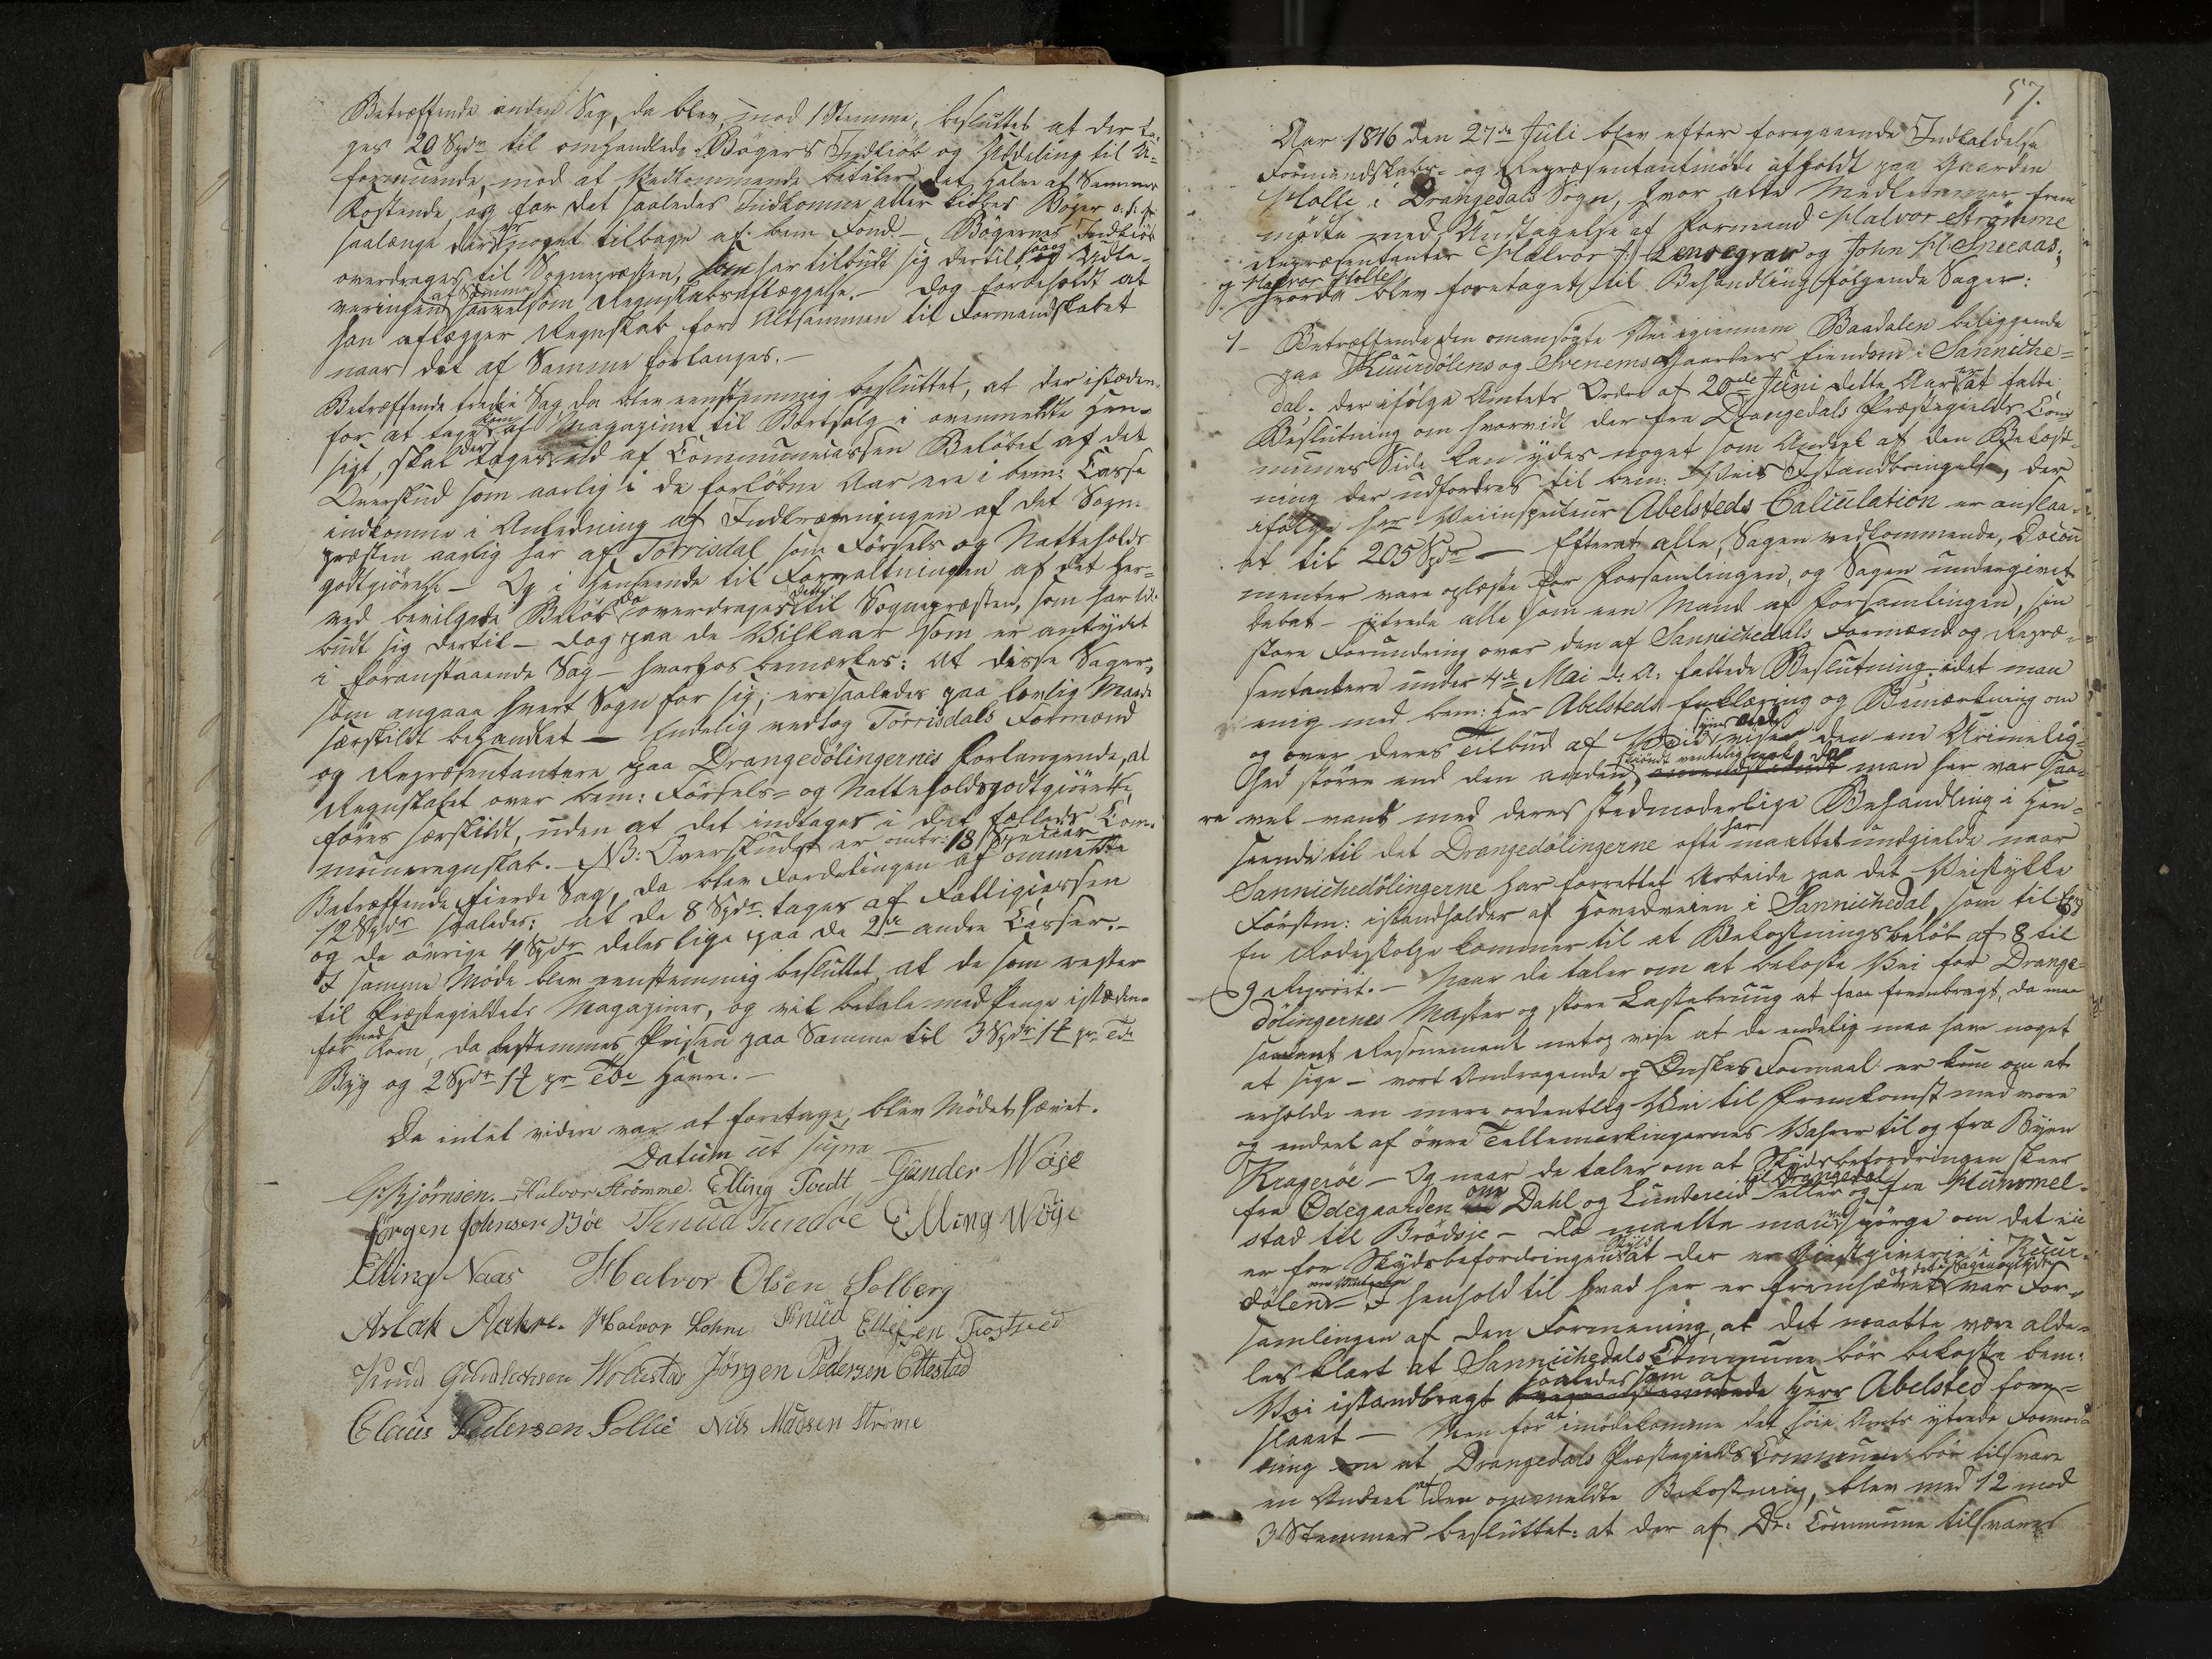 Betræffende anden Sag, da blev, mod 1 Stemme, besluttet at der ta-
ges 20 Spdr til omhandlede Bøgers Indkiøb og Uddeling til U-
formuende, mod at Vedkommende betaler det halve af Sammes
Kostende, og for det saaledes Indkomne atter kiøbes Bøger o: s: fr:
saalænge der er noget tilbage af bem Fond. – Bøgernes Indkiøb
overdrages til Sognepræsten, som har tilbudt sig dertil, saavel Udle-
veringen af Samme som Regnskabsaflæggelse. – dog forbeholdt at
han aflægger Regnskab for Altsammen til Formandskabet
naar det af Samme forlanges. –
Betræffende tredie Sag da blev eenstemmig besluttet, at der isteden-
for at tage Korn af Magazinet til Bortsalg i ovenmeldte Hen-
sigt, skal der tages ud af Communecassen Beløbet af det
Overskud som aarlig i de forløbne Aar ere i bem: Casse
indkomne i Anledning af Indkrævningen af det Sogne-
præsten aarlig har af Tørrisdal som Førsels og Natteholds
godtgiørelse – Og i Henseende til Forvaltningen af det her-
ved bevilgede Beløb da overdrages dette til Sognepræsten, som har til-
budt sig dertil – dog paa de Vilkaar som er antydet
i foranstaaende Sag – hvorhos bemærkes: At disse Sager,
som angaae hvert Sogn for sig, ere saaledes paa lovlig Maade
særskildt behandlet – Endelig vedtog Tørrisdals Formænd
og Repræsentantere paa Drangedølingernes Forlangende, at
Regnskabet over bem: Førsels- og Natteholdsgodtgiørelse,
føres særskildt, uden at det indtages i det fælleds Com-
muneregnskab. – NB: Overskudet er omtr: 18 Specier
Betræffende fierde Sag, da blev Fordelingen af ommeldte
12 Spdr saaledes: at de 8 Spdr. tages af Fattigcassen
og de øvrige 4 Spdr deles lige paa de 2de andre Casser. –
I samme Møde blev eenstemmig besluttet, at de som rester
til Præstegieldets Magaziner, og vil betale med Penge isteden-
for med Korn, da bestemmes Prisen paa Samme til 3 Spdr 1 t pr Tde
Byg og 2 Spdr 1 t pr Tde Havre. –
Da intet videre var at foretage, blev Mødet hævet.
Datum ut supra
Bjørnsen. – Halvor Strømme. Elling Tvedt Gunder Wøje
Jørgen Johnsen Bøe Knud Tundöe Elling Wøje
Elling Naas Halvor Olsen Solberg
Aslak Aakre. Halvor Lohne Knud Ellefsen Trostved
Knud Gundersen Wollestad Jørgen Pedersen Ettestad
Claus Pedersen Sollie Nils Madsen Strøme
57.
Aar 1846 den 27de Juli blev efter foregaaende Indkaldelse
Formandskabs- og Repræsentantmøde afholdt paa Gaarden
Holte i Drangedals Sogn, hvor alle Medlemmer frem
mødte med Undtagelse af Formand Halvor Strømme
Repræsentanter Halvor J: Lensegrav og John H: Snecaas,
og Halvor Holte
hvorda blev foretaget til Behandling følgende Sager:
1– Betræffende den omansøgte Vei igiennem Baadalen beliggende
paa Kuurdølens og Svenems Gaarders Eiendom i Sannike-
dal. der ifølge Amtets Ordre af 20de Juni dette Aar er at fatte
Beslutning om hvorvidt der fra Drangedals Præstegields Com
munes Side kan ydes noget som Andeel af den Bekost-
ning der udfordres til bem: Veis Istandbringelse, der
ifølge Hr Veiinspecteur Abelsteds Calculation er anslaa-
et til 205 Spdr – Efterat alle, Sagen vedkommende, Docu
menter vare oplæste for Forsamlingen, og Sagen undergivet
Debat – ytrede alle som een Mand af Forsamlingen, sin
store Forundring over den af Sannichedals Formænd og Repræ-
sentantere under 4de Mai d. A. fattede Beslutning, idet man
enig med bem: Hr Abelsteds Erklæring og Bemærkning om
og over deres Tilbud af Veie, synes at vise den ene Urimelig-
hed større end den anden, skiøndt ventelig nok, da man her var saa-
re vel vant med deres stedmoderlige Behandling i Hen-
seende til det Drangedølingerne ofte har maattet undgielde naar
Sannichedølingerne har forrettet Arbeide paa det Veistykke
Førstn: istandholder af Hovedveien i Sannichedal, som til
En Rodestolpe kommer til at Bekostningsbeløb af 8 til
9 – Naar de taler om at bekoste Vei for Drange-
dølingernes Master og store Lastebrug at faae frembragt, da maa
saadant Resonement netop vise at de endelig maa have noget
at sige – vort Andragende og Ønskes Formaal er kun om at
erholde en mere ordentlig Vei til Fremkomst med vore
og endeel af øvre Tellemarkingernes Vahrer til og fra Byen
Kragerøe – Og naar de taler om at Skydsbefordringen skeer
fra Ødegaarden om Dahl og Lundereid til Drangedal eller og fra Hummel-
stad til Brødsje – da maatte man spørge om det ei
er for Skydsbefordringens Skyld at der er Giestgiverie i Kuur-
dølen – I henhold til hvad her er fremhævet og det i Sagen oplyste var For-
samlingen af den Formening, at det maatte være alde-
les klart at Sannichedals Commune bør bekoste bem:
Vei istandbragt saaledes som af Herr Abelsted fore-
slaaet – Men for at imødekomme det høie Amts yttrede Formod-
ning om at Drangedals Præstegields Commune bør tilsvare
en Andeel af den ommeldte Bekostning, blev med 12 mod
3 Stemmer besluttet: at der af Dr: Commune tilsvares